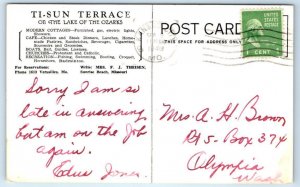 TI-SUN TERRACE
ON THE LAKE OF THE OZARKS
MODERN COTTAGES—Furnished, gas, electric lights, Showers.
CAFE—Chicken and Steak Dinners, Lunches, Home-made Pastries, Sandwiches, Beverages, Cigarettes, Souvenirs and Groceries.
BOATS, Bait, Guides, Licenses.
CHURCHES—Protestant and Catholic.
RECREATION—Fishing, Swimming, Boating, Croquet, Horseshoes, Shuffleboard.
For Reservations: Write: MRS. F. J. THRISEN,
Phone 1613 Versailles, Mo. Sunrise Beach, Missouri
POST CARD
THIS SPACE FOR ADDRESS ONLY
1 CENT
Sorry I am so
late in answering
but am on the Job
again.
Jones
Mrs. A. H. Brown
Rt 5 - Box 374
Olympia
Wash